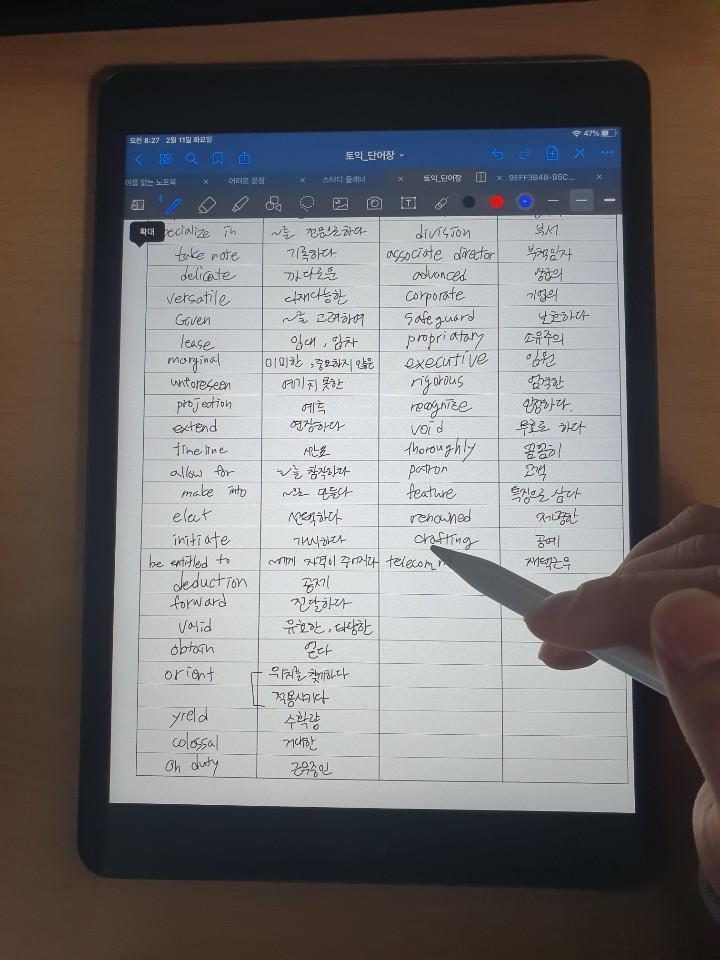 오전 8:27 2월 11일 화요일 47%
토익_단어장
이름 없는 노트북 어려운 문장 스터디 플래너 토익_단어장 9EFF3B48-B5C...
확대
ecialize in ~를 전문으로하다 division 부서
take note 기록하다 associate director 부책임자
delicate 까다로운 advanced 상급의
versatile 다재다능한 corporate 기업의
Given ~를 고려하여 safeguard 보호하다
lease 임대, 임차 propriatary 소유주의
marginal 미미한, 중요하지 않은 executive 임원
untoreseen 예기치 못한 rigorous 엄격한
projection 예측 recognize 인정하다.
extend 연장하다 void 무효로 하다
timeline thoroughly 꼼꼼히
allow for ~를 참작하다 patron 고객
make into ~로 만들다 feature 특징으로 삼다
elect 선택하다 renowned
initiate 개시하다 crafting 공예
be entitled to ~에게 자격이 주어지다 telecom 재택근무
deduction 공제
forward 전달하다
valid 유효한, 타당한
obtain 얻다
orient 위치를 찾게하다
적응시키다
yield 수확량
colossal 거대한
on duty 근무중인